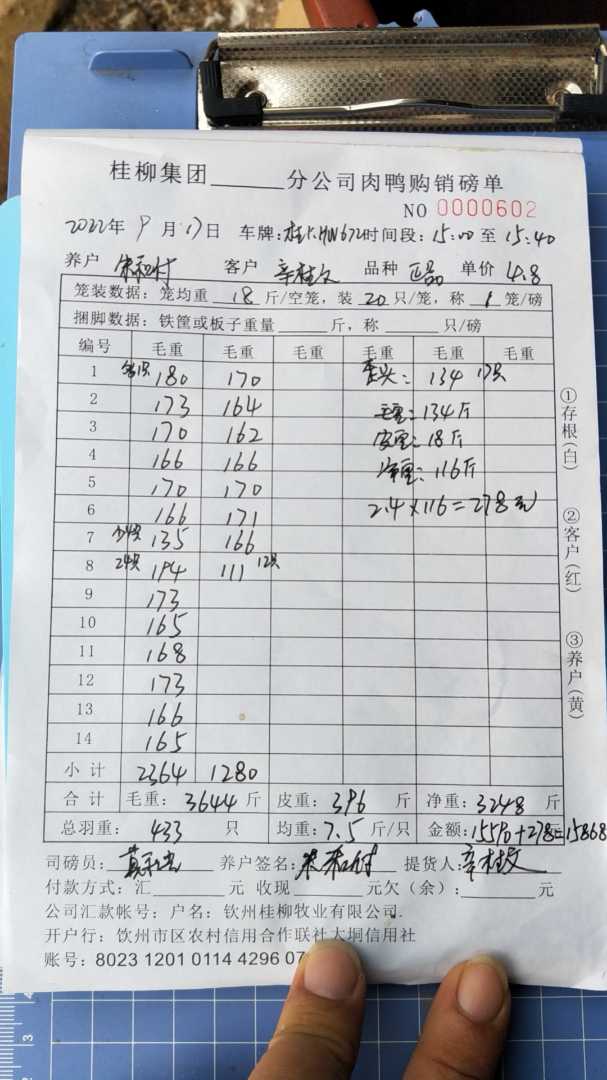 桂柳集团______分公司肉鸭购销磅单
NO 0000602
2022年 9 月 17日 车牌: 时间段: 15:00 至 15:40
养户 朱和付 客户 辛桂文 品种 正品 单价 4.8
笼装数据: 笼均重 18 斤/空笼, 装 20 只/笼, 称 1 笼/磅
捆脚数据: 铁筐或板子重量______斤, 称______只/磅
编号 毛重 毛重 毛重 毛重 毛重 毛重
1 180 170 歪头: 134 17只
2 173 164 毛重: 134斤
3 170 162 皮重: 18斤
4 166 166 净重: 116斤
5 170 170 2.4×116=278元
6 166 171
7 少4只 135 166
8 24只 194 111 12只
9 173
10 165
11 168
12 173
13 166
14 165
小计 2364 1280
合计 毛重: 3644 斤 皮重: 396 斤 净重: 3248 斤
总羽重: 433 只 均重: 7.5 斤/只 金额: 15590+278=15868
司磅员: 养户签名: 朱和付 提货人: 辛桂文
付款方式: 汇______元 收现______元欠(余):______元
公司汇款帐号: 户名: 钦州桂柳牧业有限公司.
开户行: 钦州市区农村信用合作联社大垌信用社
账号: 8023 1201 0114 4296 07
①存根(白)
②客户(红)
③养户(黄)